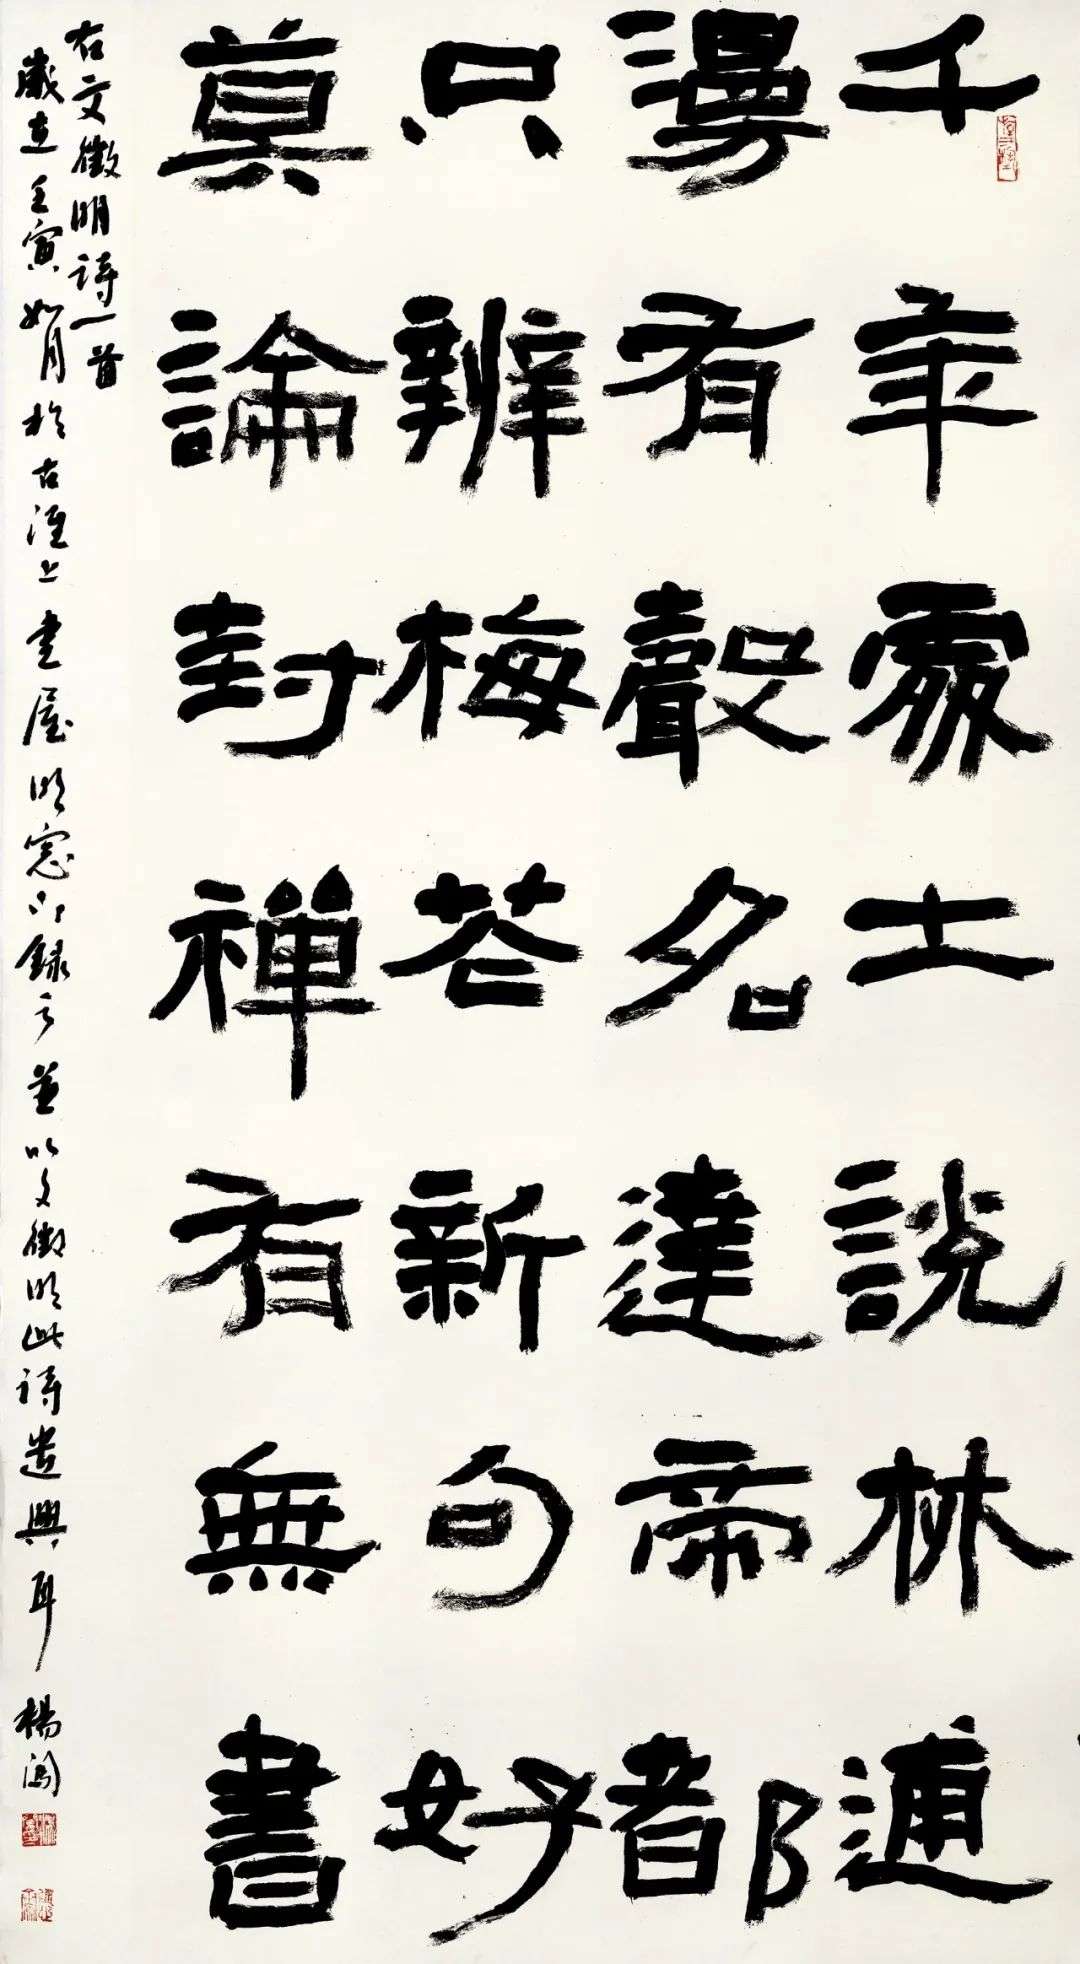 千年處士說林逋
漫有聲名達帝都
只辨梅花新句好
莫論封禪有無書
右文徵明詩一首
歲在壬寅如月於古淮上書屋明窓下錄之並以文徵明此詩遣興耳 楊